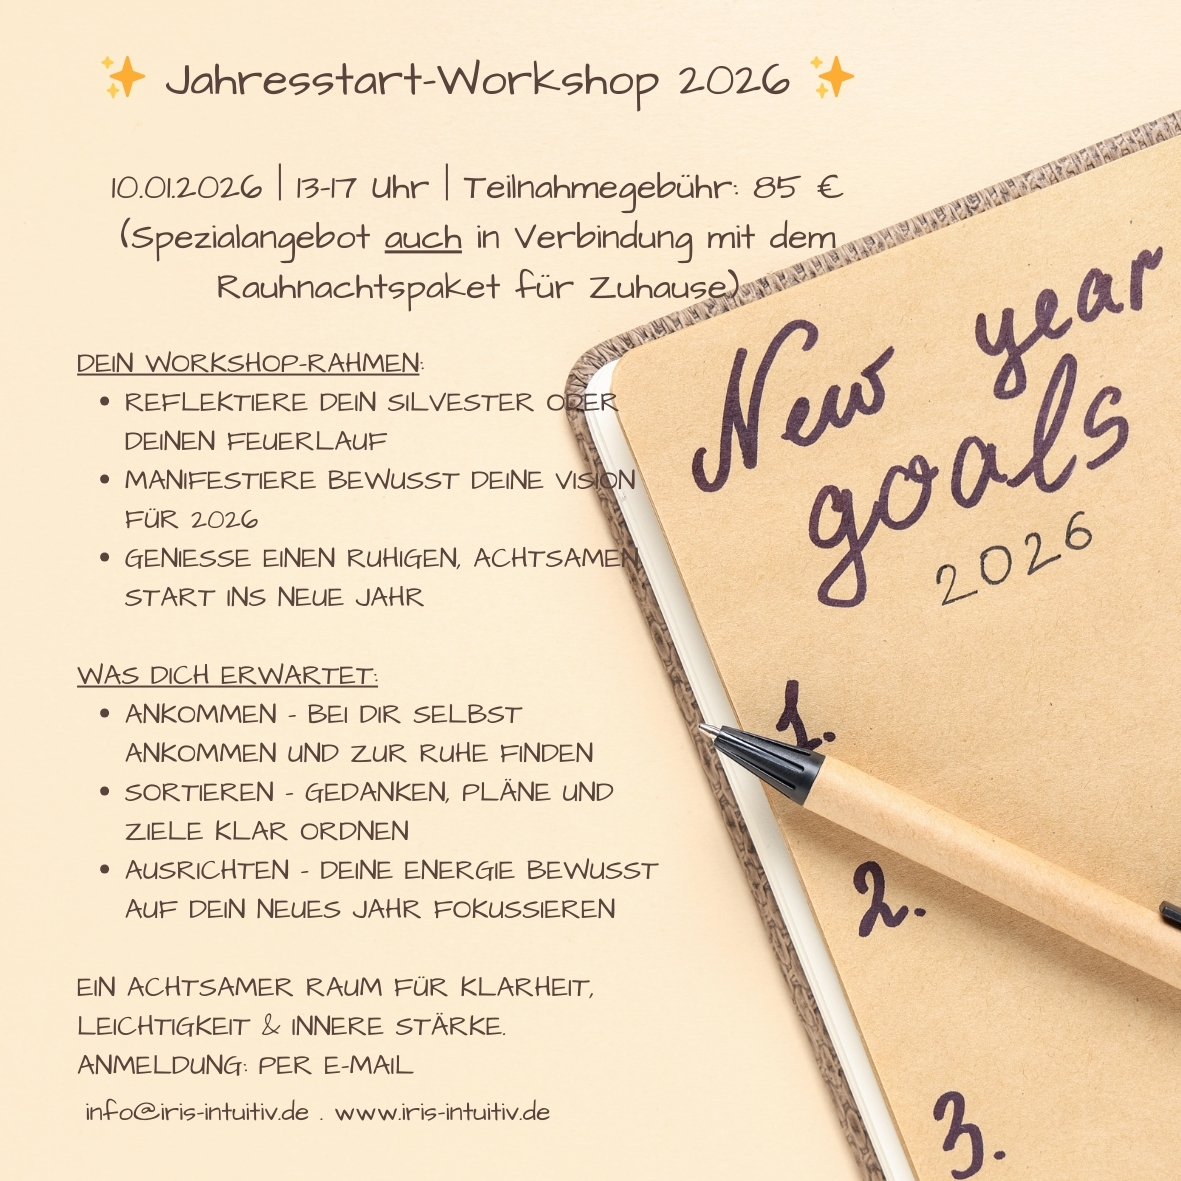 ✨ Jahresstart-Workshop 2026 ✨
10.01.2026 | 13-17 Uhr | Teilnahmegebühr: 85 €
(Spezialangebot auch in Verbindung mit dem
Rauhnachtspaket für Zuhause)
DEIN WORKSHOP-RAHMEN:
• REFLEKTIERE DEIN SILVESTER ODER
DEINEN FEUERLAUF
• MANIFESTIERE BEWUSST DEINE VISION
FÜR 2026
• GENIESSE EINEN RUHIGEN, ACHTSAMEN
START INS NEUE JAHR
WAS DICH ERWARTET:
• ANKOMMEN - BEI DIR SELBST
ANKOMMEN UND ZUR RUHE FINDEN
• SORTIEREN - GEDANKEN, PLÄNE UND
ZIELE KLAR ORDNEN
• AUSRICHTEN - DEINE ENERGIE BEWUSST
AUF DEIN NEUES JAHR FOKUSSIEREN
EIN ACHTSAMER RAUM FÜR KLARHEIT,
LEICHTIGKEIT & INNERE STÄRKE.
ANMELDUNG: PER E-MAIL
info@iris-intuitiv.de . www.iris-intuitiv.de
New year
goals
2026
1.
2.
3.